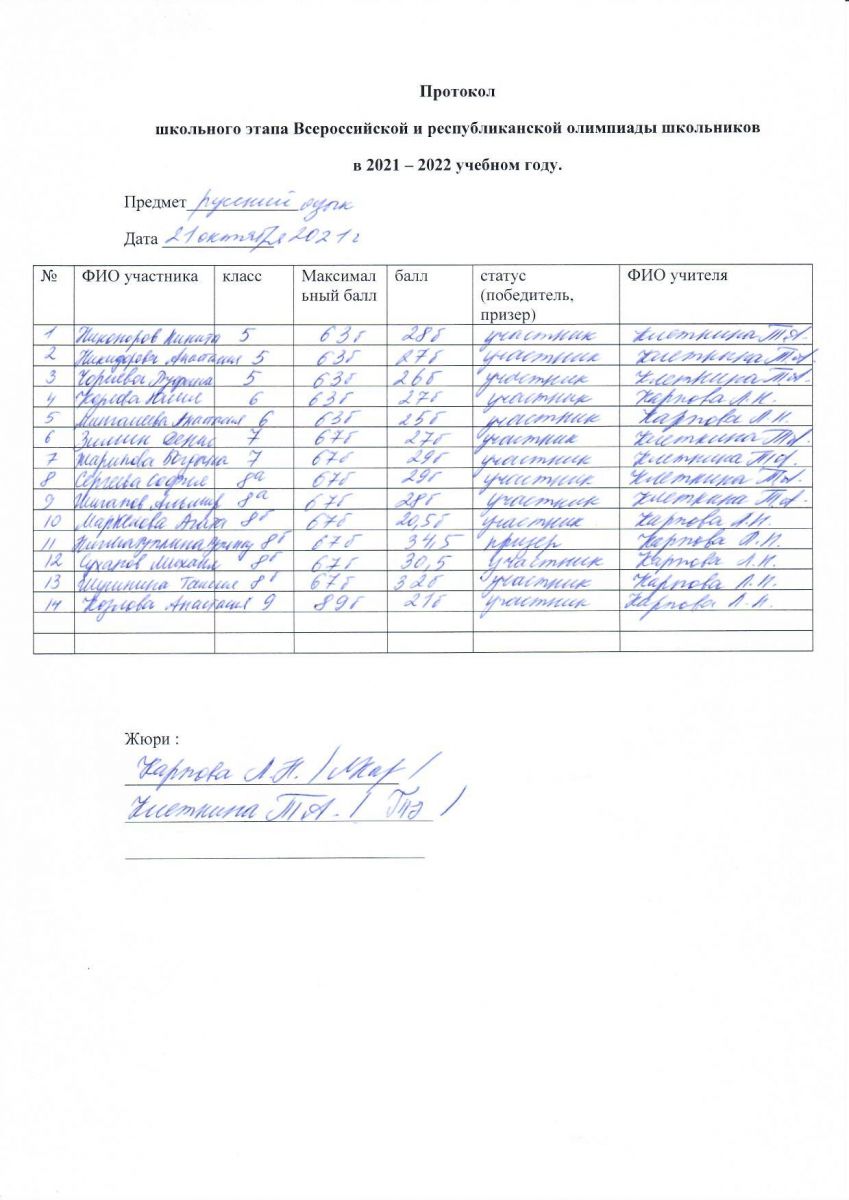 Протокол
школьного этапа Всероссийской и республиканской олимпиады школьников
в 2021 – 2022 учебном году.
Предмет русский язык
Дата 21 октября 2021 г
№ ФИО участника класс Максимальный балл балл статус (победитель, призер) ФИО учителя
1 Никоноров Никита 5 63б 28б участник Клеткина Т.А.
2 Никифорова Анастасия 5 63б 27б участник Клеткина Т.А.
3 5 63б 26б участник Клеткина Т.А.
4 6 63б 27б участник Карпова Л.Н.
5 Мингалеева Анастасия 6 63б 25б участник Карпова Л.Н.
6 Зимин Денис 7 67б 27б участник Клеткина Т.А.
7 7 67б 29б участник Клеткина Т.А.
8 Сергеева София 8а 67б 29б участник Клеткина Т.А.
9 Жиганов 8а 67б 28б участник Клеткина Т.А.
10 Маркелова Агата 8б 67б 20,5б участник Карпова Л.Н.
11 8б 67б 34,5 призер Карпова Л.Н.
12 Сухаров Михаил 8б 67б 30,5 участник Карпова Л.Н.
13 Шушпина Таисия 8б 67б 32б участник Карпова Л.Н.
14 Козлова Анастасия 9 89б 21б участник Карпова Л.Н.
Жюри :
Карпова Л.Н. / ЛКар /
Клеткина Т.А. /